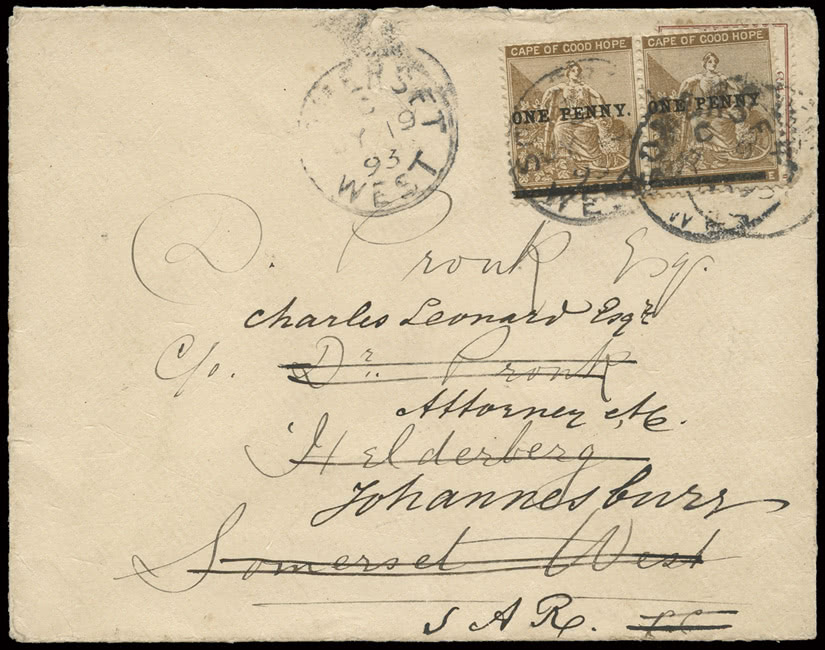 CAPE OF GOOD HOPE CAPE OF GOOD HOPE
ONE PENNY. ONE PENNY
93
WEST
D. Pronk Esq.
Charles Leonard Esqr
C/o. Dr. Pronk
Attorney &c.
Helderberg
Johannesburg
Somerset West
S A R.